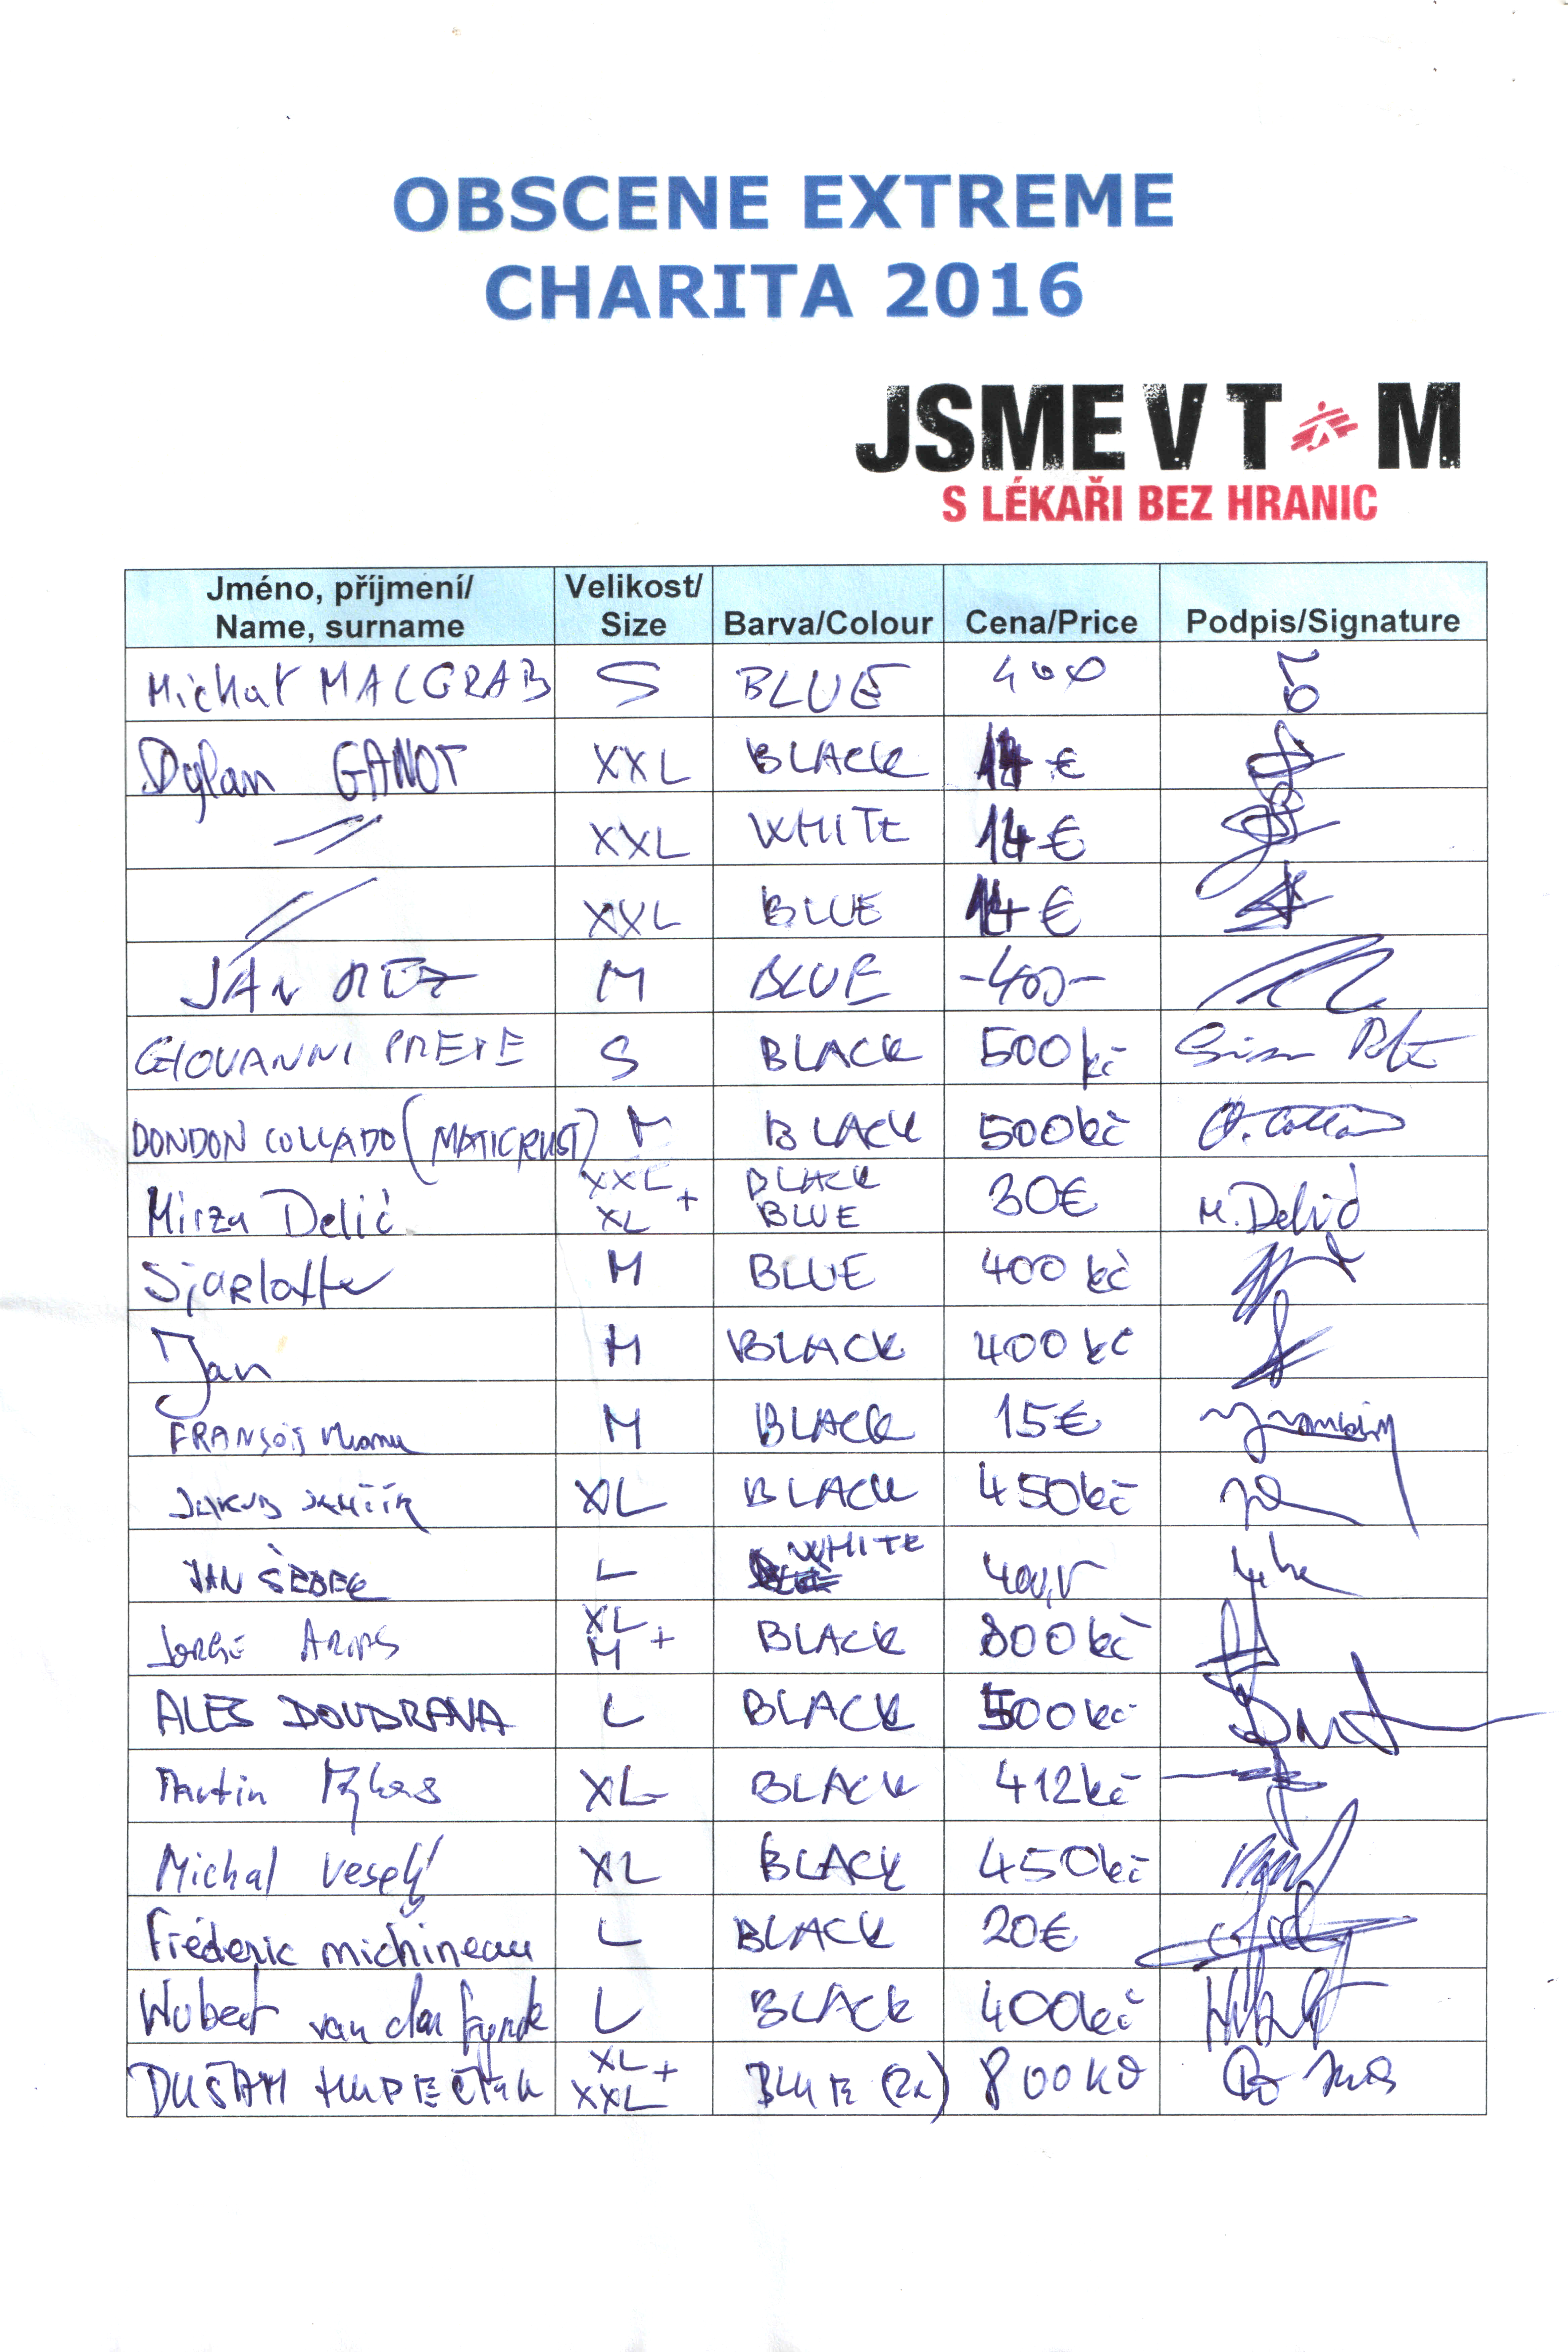 OBSCENE EXTREME
CHARITA 2016
JSME V T M
S LÉKAŘI BEZ HRANIC
Jméno, příjmení/ Name, surname Velikost/ Size Barva/Colour Cena/Price Podpis/Signature
Michał MALGRAB S BLUE 400
Dylan GANOT XXL BLACK 14 €
XXL WHITE 14 €
XXL BLUE 14 €
JAN M BLUE -400-
GIOVANNI PRETE S BLACK 500 kč
DONDON COLLADO (MATICRUST) M BLACK 500 kč
Mirza Delić XXL + XL BLACK BLUE 30€ M. Delić
Sjarlotte M BLUE 400 kč
Jan M BLACK 400 kč
FRANÇOIS M BLACK 15€
JAKUB XL BLACK 450 kč
JAN ŠEBEK L WHITE 400,-
Jorge XL + M BLACK 800 kč
ALES DOUDRAVA L BLACK 500 kč
Martin XL BLACK 412 kč
Michal Veselý XL BLACK 450 kč
Fréderic michineau L BLACK 20€
Wubert van der L BLACK 400 kč
DUŠAN XL + XXL BLUE (2x) 800 kč